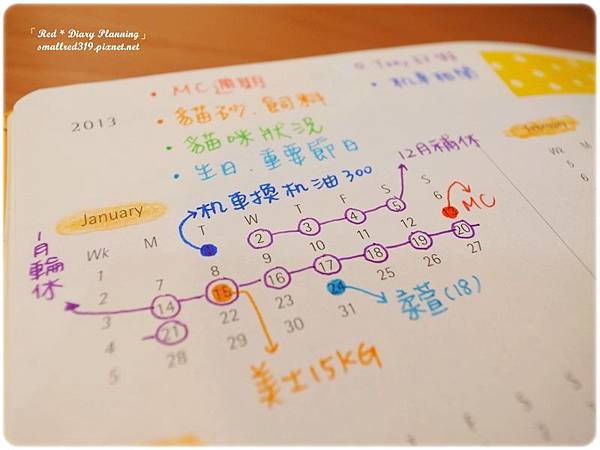 「 Red * Diary Planning 」
smallred319.pixnet.net
2013
• MC週期
• 貓砂.飼料
• 貓咪狀況
• 生日.重要節日
机車換机油300
12月補休
MC
1月輪休
January
Wk M T W T F S S
1 2 3 4 5 6
2 7 8 9 10 11 12
3 14 15 16 17 18 19 20
4 21 22 23 24 25 26 27
5 28 29 30 31
美士15KG
柔萱(18)
February
Wk M
5
6